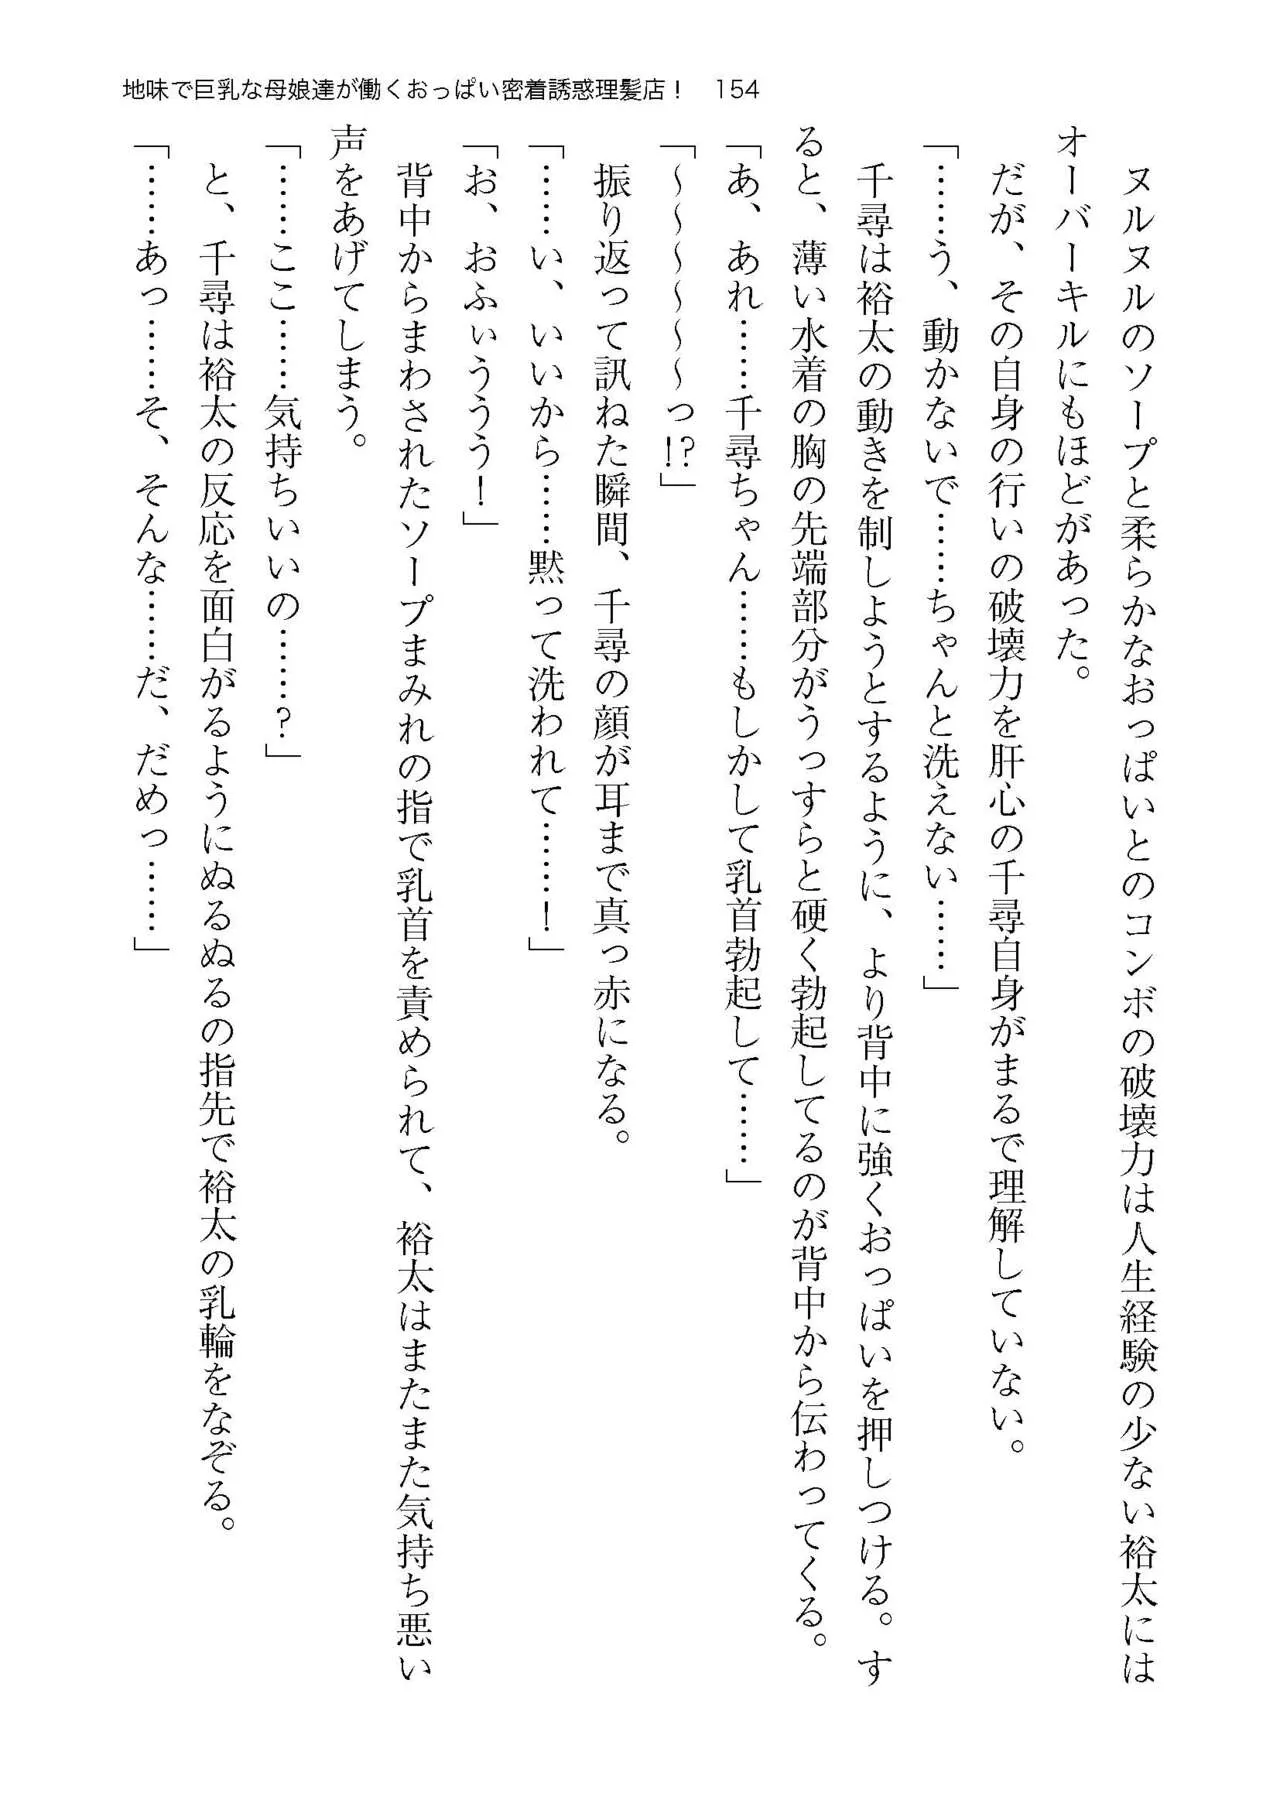 地味で巨乳な母娘達が働くおっぱい密着誘惑理髪店！　154
ヌルヌルのソープと柔らかなおっぱいとのコンボの破壊力は人生経験の少ない裕太には
オーバーキルにもほどがあった。
だが、その自身の行いの破壊力を肝心の千尋自身がまるで理解していない。
「……う、動かないで……ちゃんと洗えない……」
千尋は裕太の動きを制しようとするように、より背中に強くおっぱいを押しつける。す
ると、薄い水着の胸の先端部分がうっすらと硬く勃起してるのが背中から伝わってくる。
「あ、あれ……千尋ちゃん……もしかして乳首勃起して……」
「～～～～～～っ!?」
振り返って訊ねた瞬間、千尋の顔が耳まで真っ赤になる。
「……い、いいから……黙って洗われて……！」
「お、おふぃううう！」
背中からまわされたソープまみれの指で乳首を責められて、裕太はまたまた気持ち悪い
声をあげてしまう。
「……ここ……気持ちいいの……？」
と、千尋は裕太の反応を面白がるようにぬるぬるの指先で裕太の乳輪をなぞる。
「……あっ……そ、そんな……だ、だめっ……」